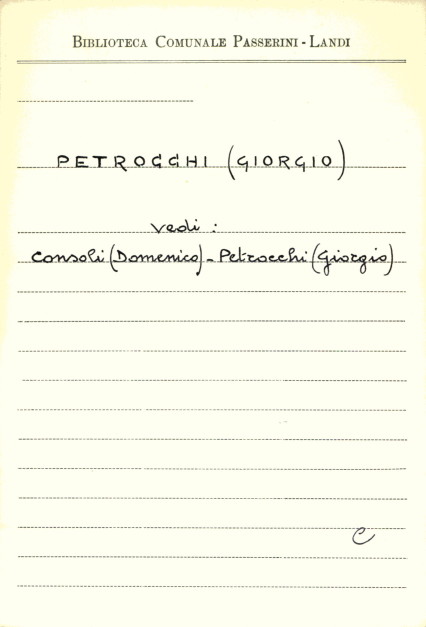 BIBLIOTECA COMUNALE PASSERINI - LANDI
PETROCCHI (GIORGIO)
vedi :
Consoli (Domenico) - Petrocchi (Giorgio)
C